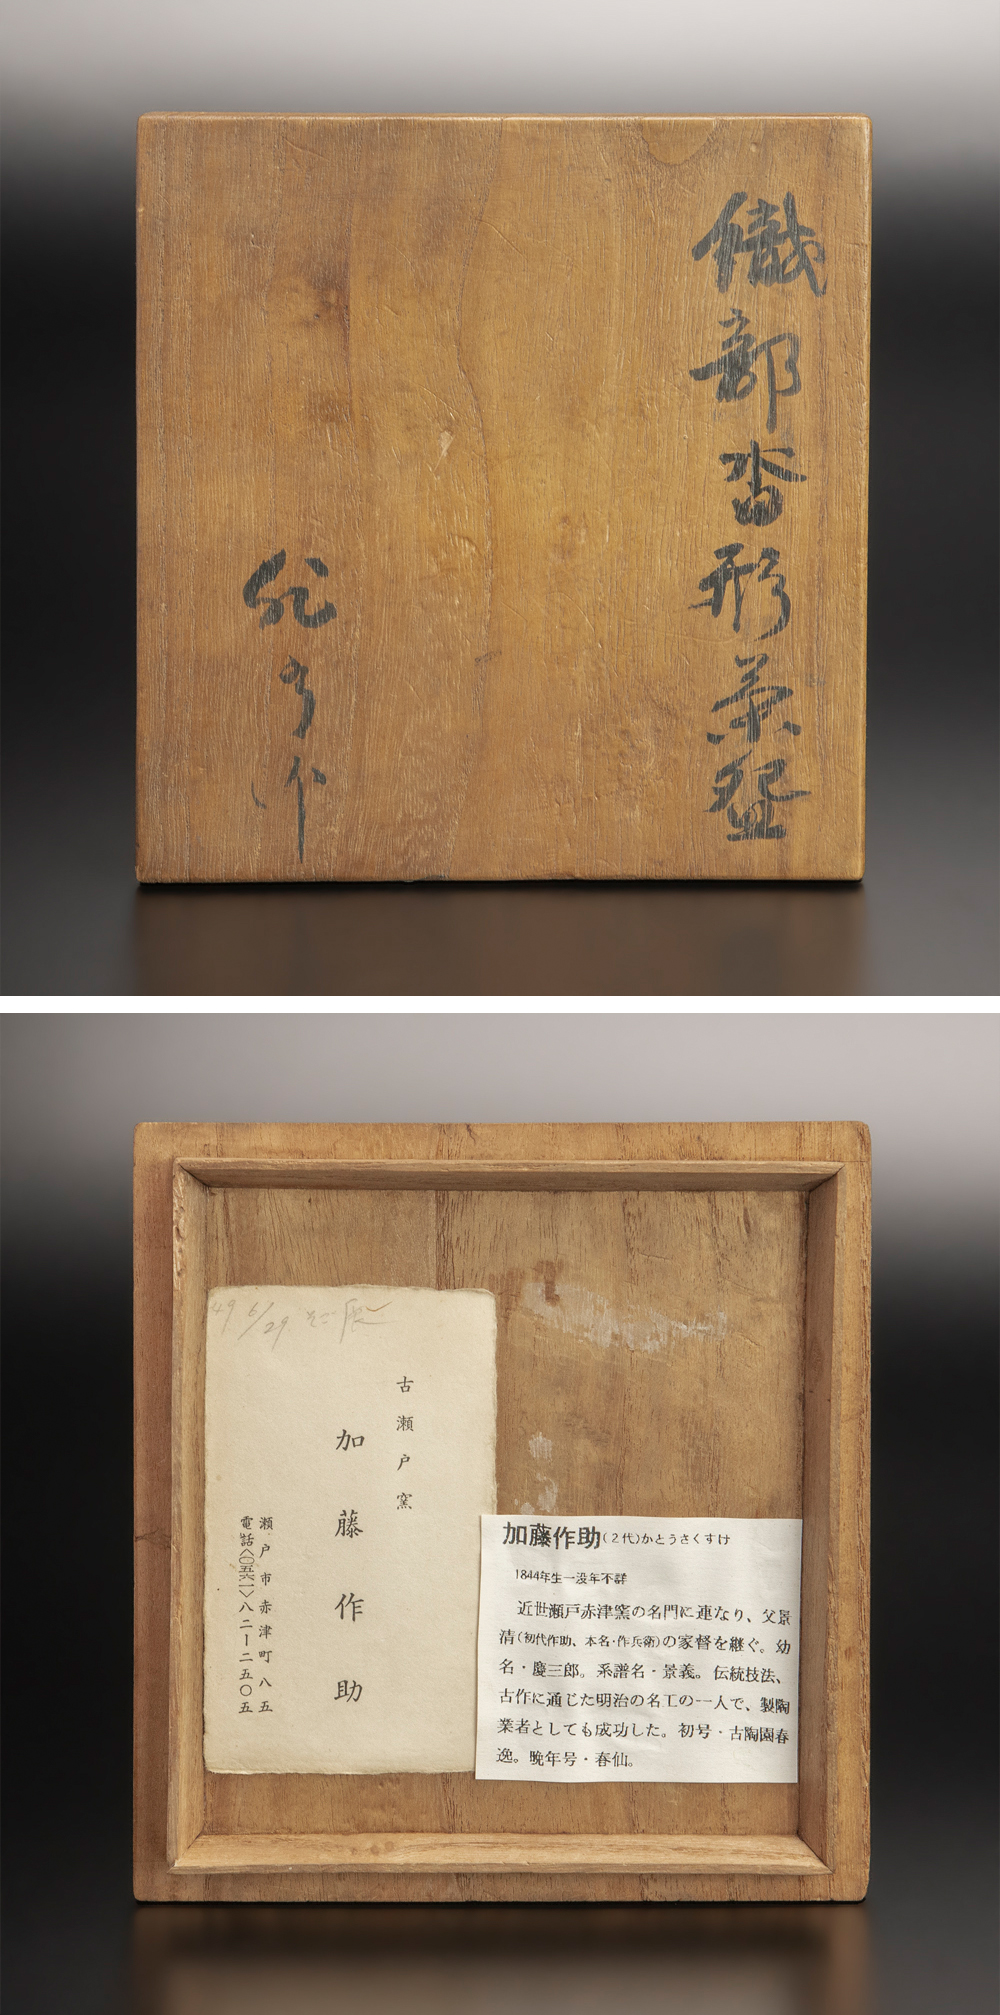 織部沓形茶盌
作
49 6/29
古瀬戸窯
加藤作助
瀬戸市赤津町八五
電話〈〇五六一〉八二ー二五〇五
加藤作助(2代)かとうさくすけ
1844年生ー没年不詳
近世瀬戸赤津窯の名門に連なり、父景
清(初代作助、本名・作兵衛)の家督を継ぐ。幼
名・慶三郎。系譜名・景義。伝統技法、
古作に通じた明治の名工の一人で、製陶
業者としても成功した。初号・古陶園春
逸。晩年号・春仙。